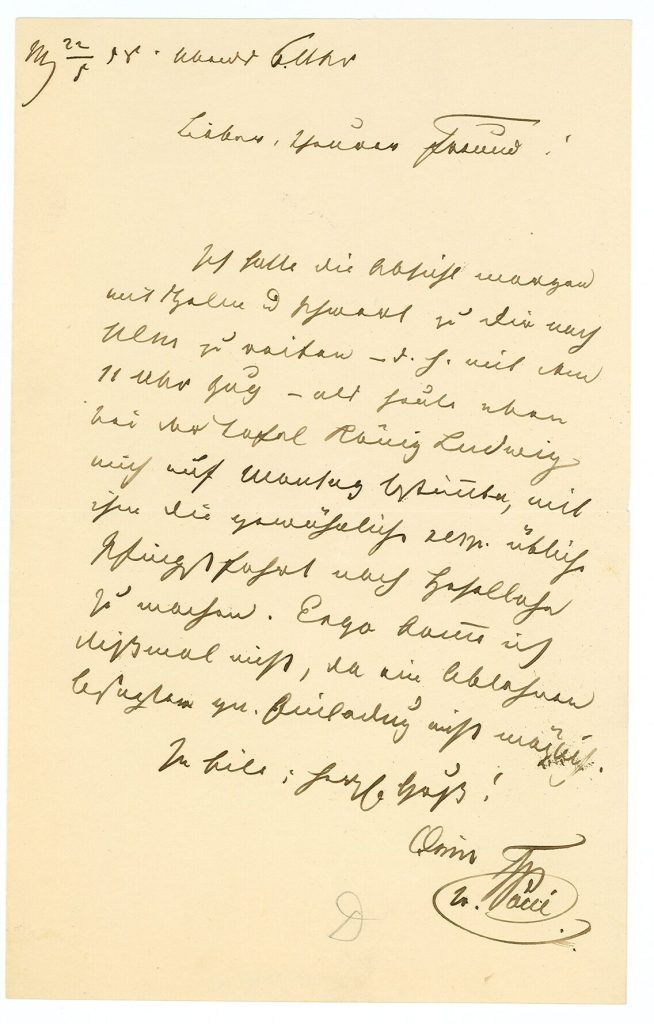 M 22/5 58. Abends 6. Uhr
Lieber, theurer Freund!
Ich hatte die Absicht morgen
mit Thelen & Schwarz zu Dir nach
Ulm zu reiten – d. h. mit dem
11 Uhr Zug – als heute eben
bei der Tafel König Ludwig
mich auf Montag bestimmte, mit
ihm die gewöhnliche resp. übliche
Pfingstfahrt nach Hesellohe
zu machen. Ergo komme ich
dießmal nicht, da ein Ablehnen
besagter gn. Einladung nicht möglich.
In Eile; herzl. Gruß!
Dein
D